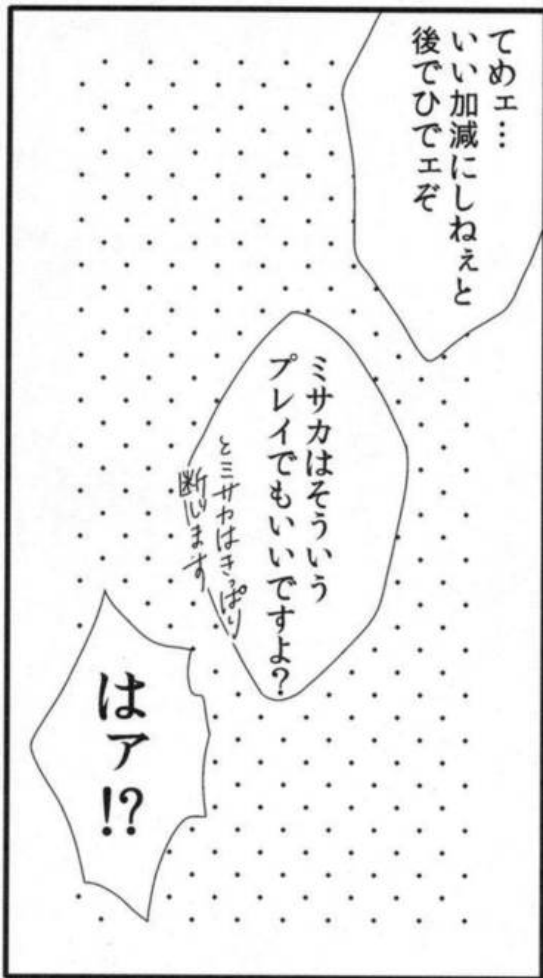 てめェ…
いい加減にしねぇと
後でひでェぞ
ミサカはそういう
プレイでもいいですよ?
とミサカはきっぱり
断じます
はァ!?